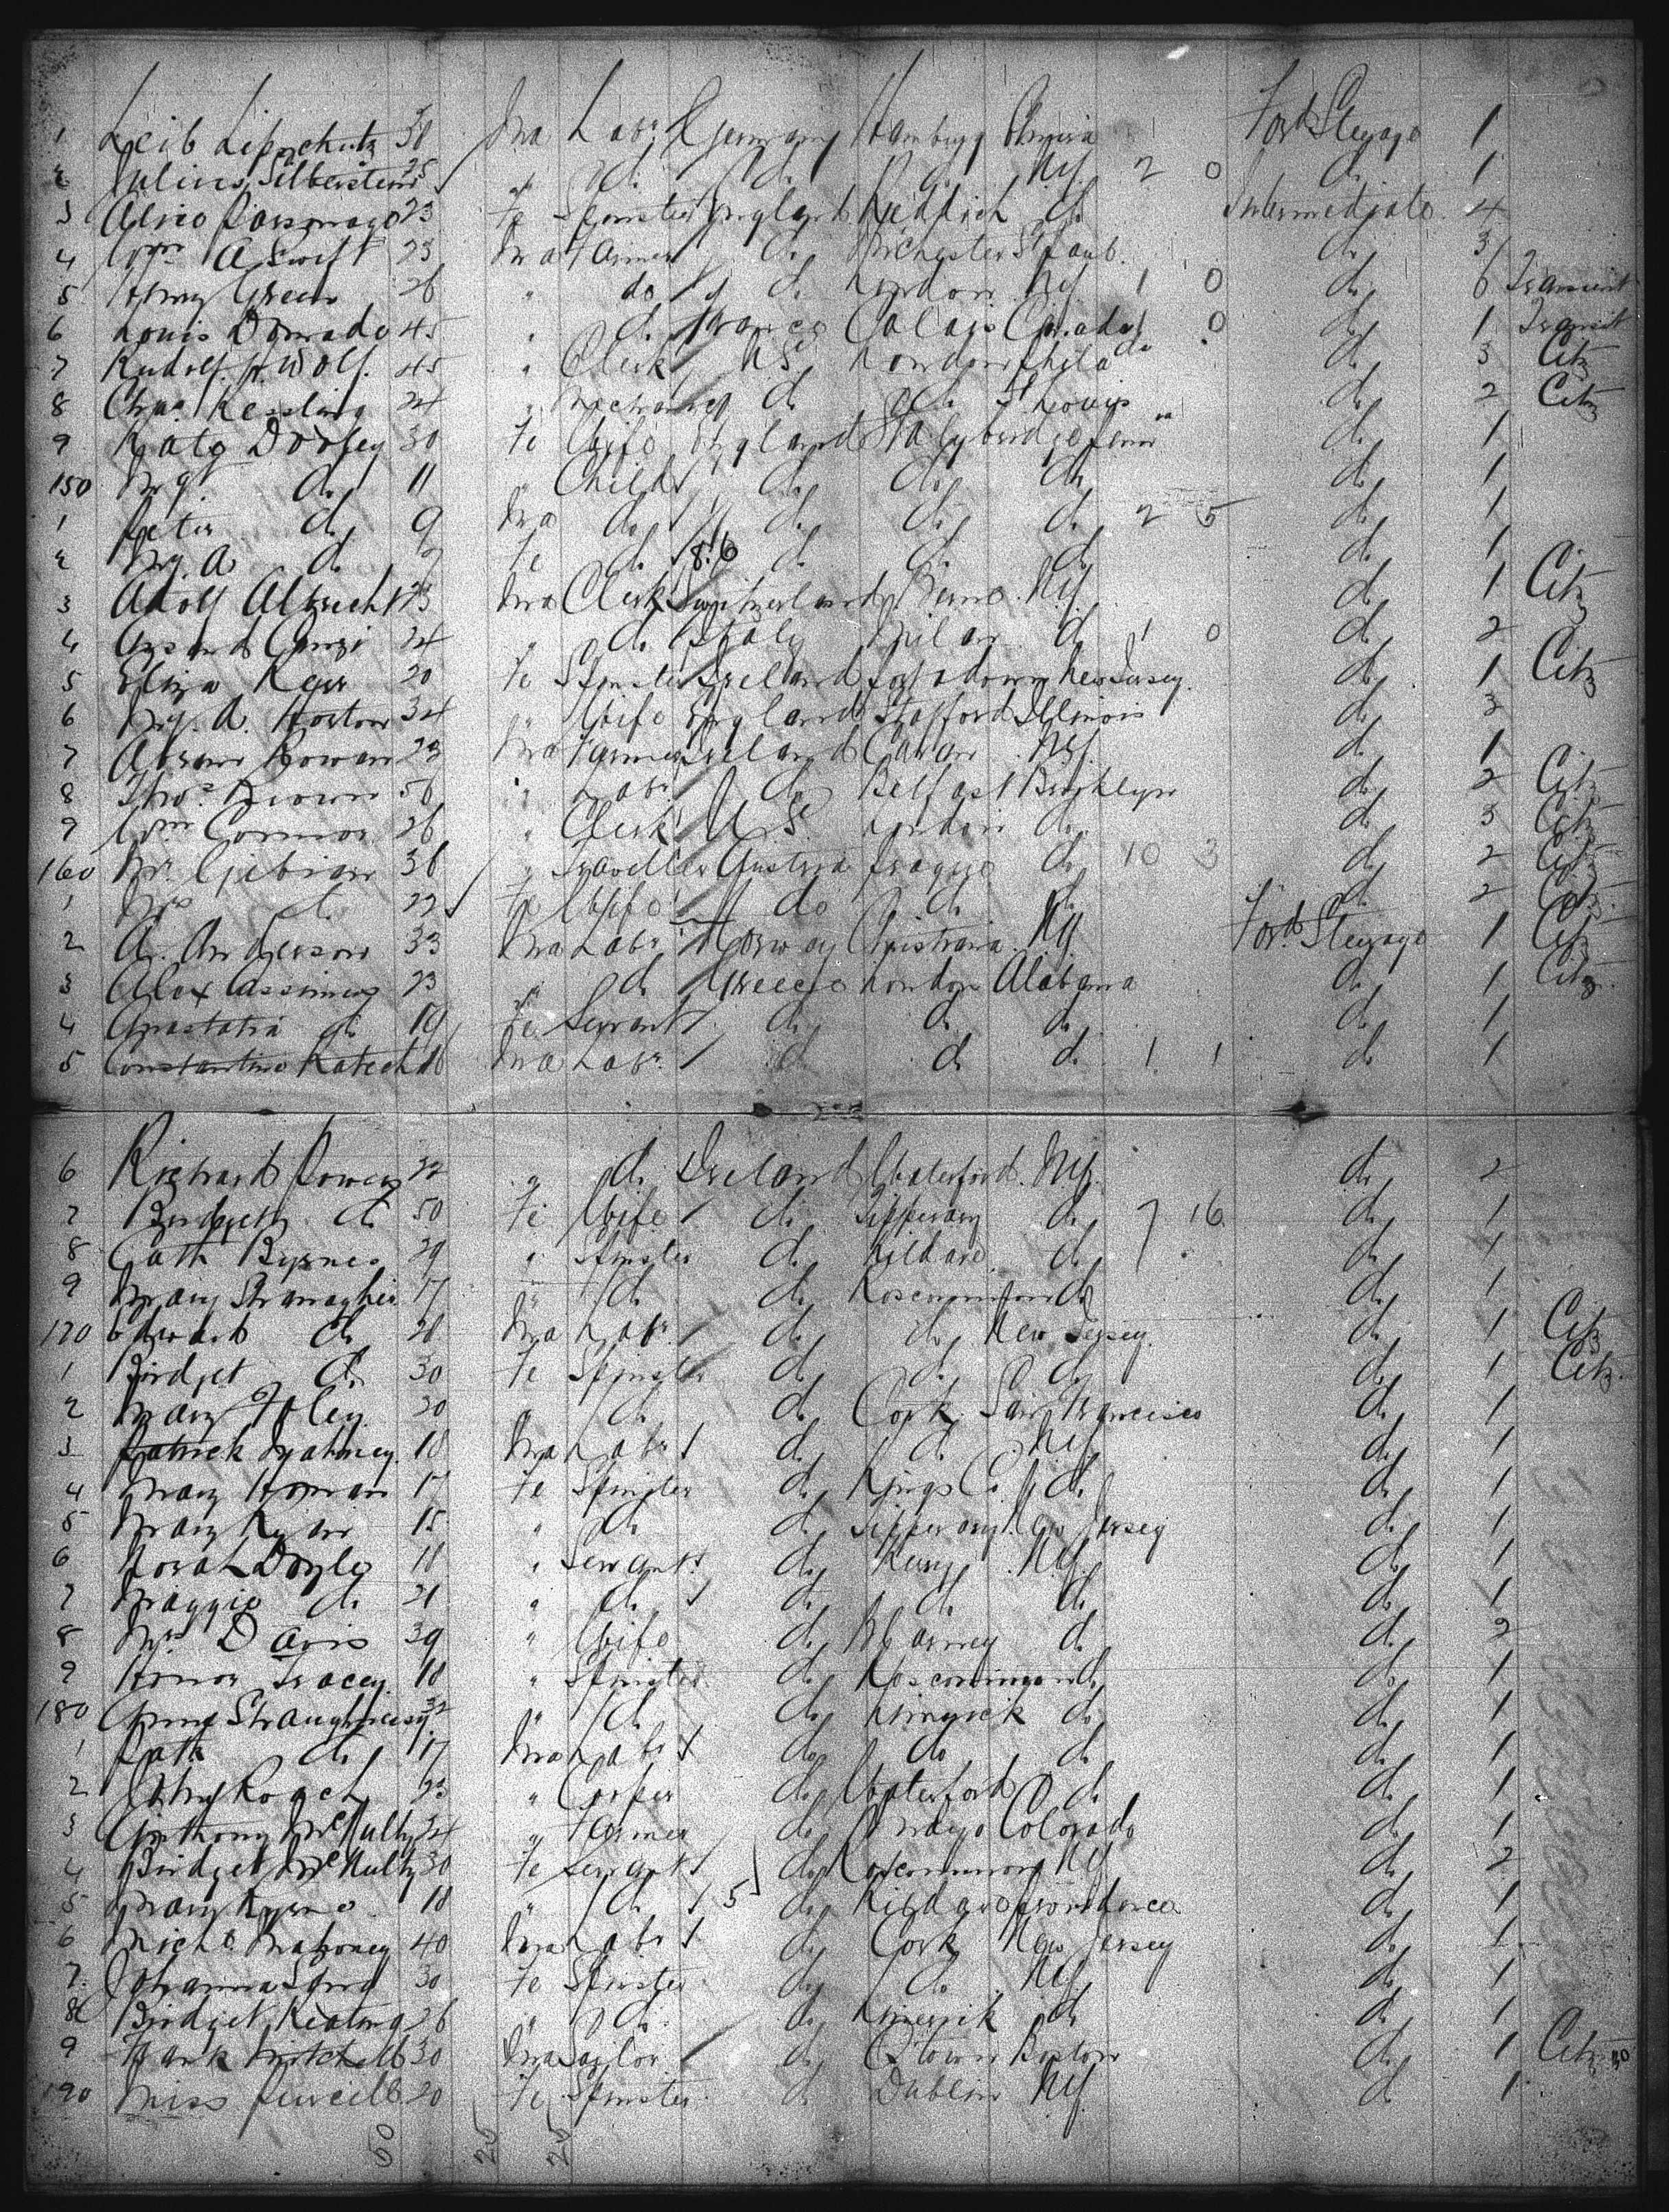 1 Leib Lipschutz 30 Ma Labr Germany Hamburg Elmira Ford Steerage 1
2 Julius Silberstein 25 do do do NY 2 0 do 1
3 23 Fe Spinster England Redditch do Intermediate 4
4 Wm A Swift 23 Ma Farmer do St Paul. do 3
5 Henry Green 26 " do do London NY 1 0 do 6 Transient
6 Louis 45 " do France Calais Canada 1 0 do 1 Transit
7 Rudolf H. Wolf. 45 " Clerk US London Phila do 3 Citz
8 Chas Kessling 24 " Mechanic do do St Louis do 2 Citz
9 Kate Dorsey 30 Fe Wife England Stalybridge do 1
150 My do 11 " Child do do do do 1
1 Peter do 9 Ma do do do do 2 5 do 1
2 My. A do 7 Fe do 8.6 do do do do 1
3 Adolf Albrecht 23 Ma Clerk Switzerland Berne NY do 1 Citz
4 24 " do Italy Milan do 1 0 do 2
5 Eliza Kerr 20 Fe Spinster Ireland Portadown New Jersey do 1 Citz
6 My. A. Horton 34 " Wife England Stafford Illinois do 3
7 Abram Rowan 23 Ma Farmer Ireland Cavan NY do 1
8 Thos Brown 50 " Labr do Belfast Brooklyn do 2 Citz
9 Wm Connor 26 " Clerk US London do do 3 Citz
160 Mr Gibian 36 " Traveller Austria Prague do 10 3 do 2 Citz
1 Mrs do 22 Fe Wife do do do do 2 Citz
2 A. Anderson 33 Ma Labr Norway Christiania NY Ford Steerage 1 Citz
3 Alex Assimus 23 " do Greece London Alabama do 1 Citz
4 Anastatia do 19 Fe Servant do do do do 1
5 Constantine 16 Ma Labr do do do 1 1 do 1
6 Richard Power 52 " do Ireland Waterford NY do 2
7 Bridget do 50 Fe Wife do Tipperary do 7 16 do 1
8 Cath Byrnes 29 " Spinster do Kildare do do 1
9 Mary 17 " do do Roscommon do do 1
170 Edward do 28 Ma Labr do do New Jersey do 1 Citz
1 Bridget do 30 Fe Spinster do do do do 1 Citz
2 Mary Foley 20 " do do Cork San Francisco do 1
3 Patrick 18 Ma Labr do do NY do 1
4 Mary Homan 17 Fe Spinster do Kings Co. do do 1
5 Mary Ryan 15 " do do Tipperary New Jersey do 1
6 Norah Doyle 18 " Servant do Kerry NY do 1
7 Maggie do 21 " do do do do do 1
8 Mrs Davis 39 " Wife do Blarney do do 2
9 Honor Tracey 18 " Spinster do Roscommon do do 1
180 Shaughnessy 32 " do do Limerick do do 1
1 Patk do 17 Ma Labr do do do do 1
2 John Roach 23 " Cooper do Waterford do do 1
3 Anthony McNulty 24 " Farmer do Mayo Colorado do 1
4 Bridget McNulty 30 Fe Servant do Roscommon NY do 2
5 Mary Byrne 18 " do 5 do Kildare Providence do 1
6 Michl Mahoney 40 Ma Labr do Cork New Jersey do 1
7 Johanna 30 Fe Spinster do do NY do 1
8 Bridget Keating 26 " do do Limerick do do 1
9 Frank Mitchell 30 Ma Sailor do Qtown Boston do 1 Citz
190 Miss Purcell 20 Fe Spinster do Dublin NY do 1
50 25 25